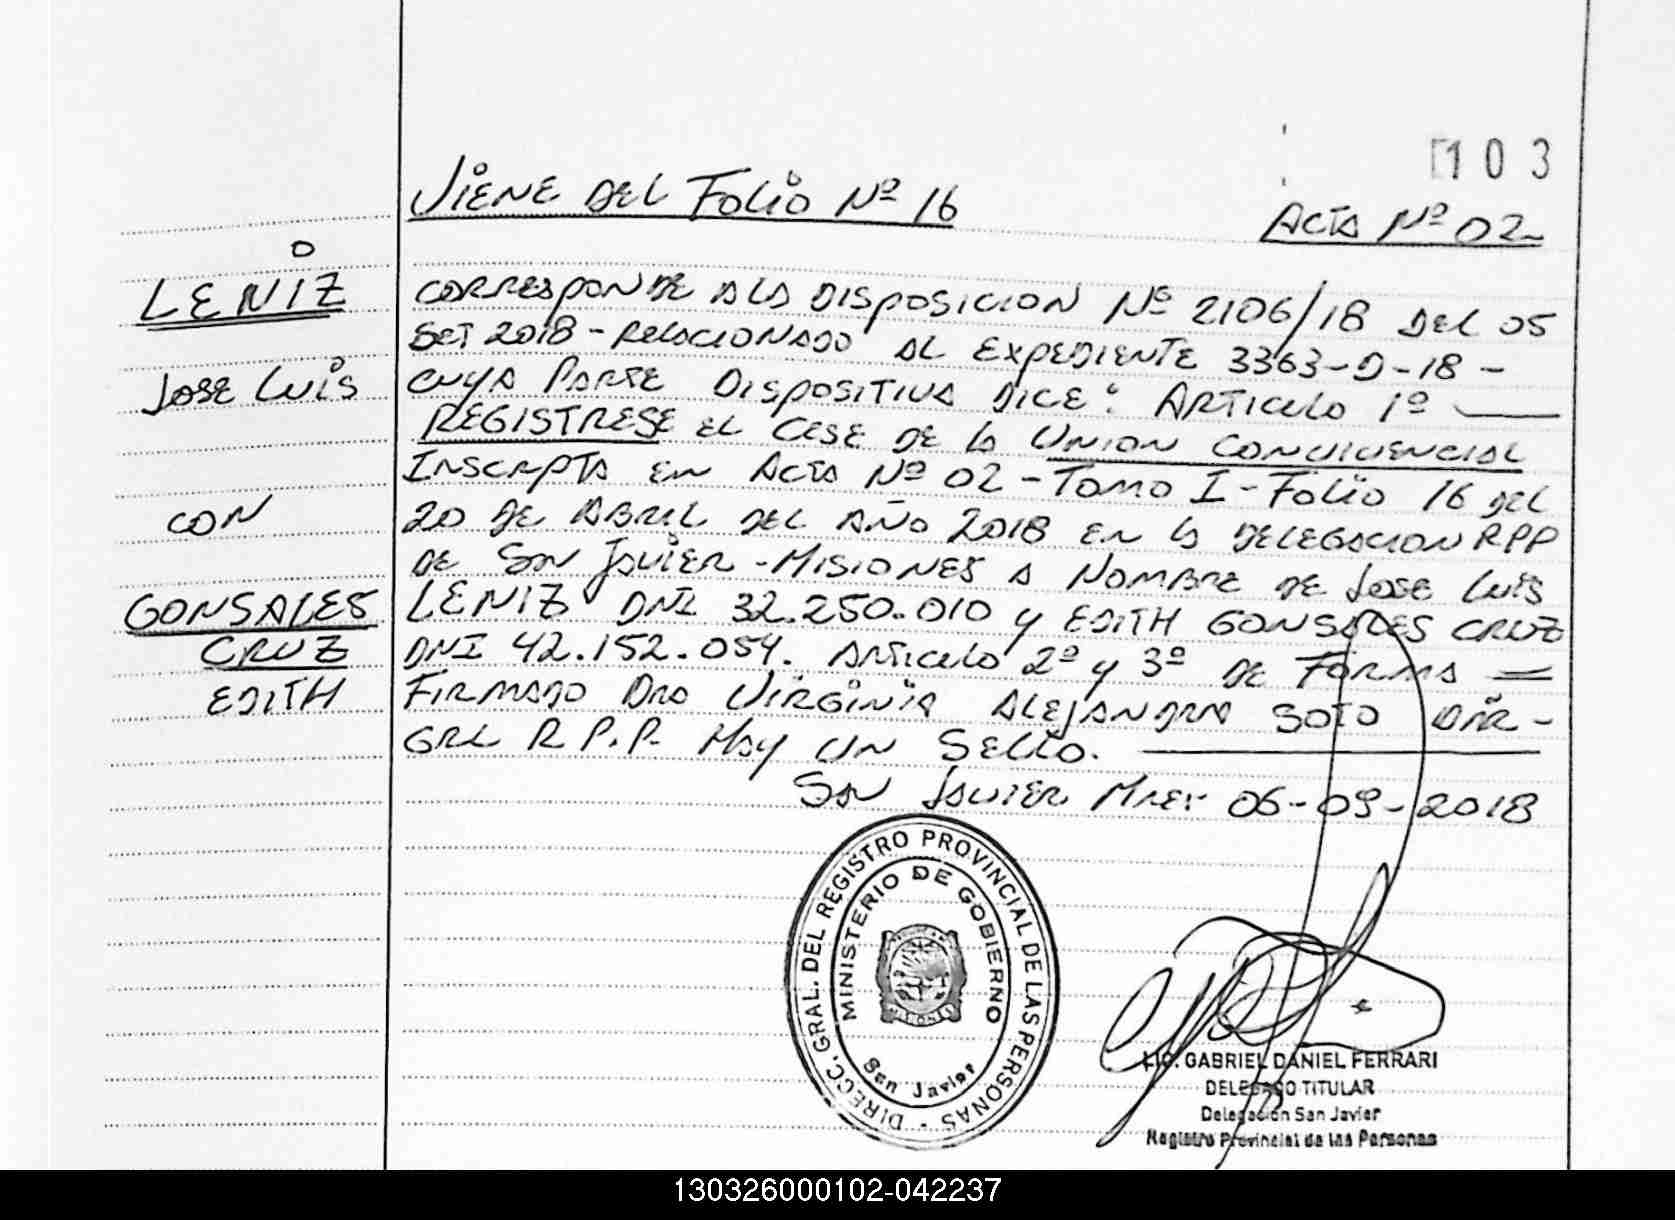 103
VIENE DEL FOLIO Nº 16
ACTA Nº 02-
LENIZ
JOSE LUIS
CON
GONSALES
CRUZ
EDITH
CORRESPONDE A LA DISPOSICION Nº 2106/18 DEL 05
SET 2018 - RELACIONADO AL EXPEDIENTE 3363-D-18 -
CUYA PARTE DISPOSITIVA DICE: ARTICULO 1º
REGISTRESE EL CESE DE LA UNION CONVIVENCIAL
INSCRIPTA EN ACTA Nº 02 - TOMO I - FOLIO 16 DEL
20 DE ABRIL DEL AÑO 2018 EN LA DELEGACION RPP
DE SAN JAVIER - MISIONES A NOMBRE DE JOSE LUIS
LENIZ DNI 32.250.010 Y EDITH GONSALES CRUZ
DNI 42.152.054. ARTICULO 2º Y 3º DE FORMA =
FIRMADO DRA VIRGINIA ALEJANDRA SOTO DIR -
GRL R P.P. HAY UN SELLO.
SAN JAVIER MNES 06-09-2018
DIRECC. GRAL. DEL REGISTRO PROVINCIAL DE LAS PERSONAS -
MINISTERIO DE GOBIERNO
MISIONES
San Javier
LIC. GABRIEL DANIEL FERRARI
DELEGADO TITULAR
Delegación San Javier
Registro Provincial de las Personas
130326000102-042237